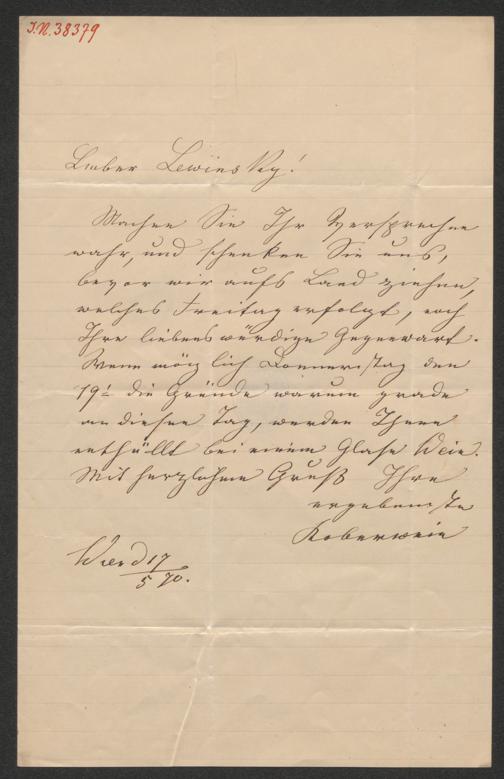 I.N. 38379
Lieber Lewinsky!
Machen Sie Ihr Versprechen
wahr, und schenken Sie uns,
bevor wir aufs Land ziehen,
welches Freitag erfolgt, noch
Ihre liebenswürdige Gegenwart.
Wenn möglich Donnerstag den
19t die Gründe warum grade
an diesen Tag, werden Ihnen
enthüllt bei einem Glase Wein.
Mit herzlichem Gruß Ihre
ergebenste
Koberwein
17
5 70.